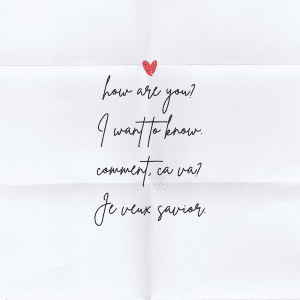 how are you?
I want to know.
comment, ca va?
Je veux savior.